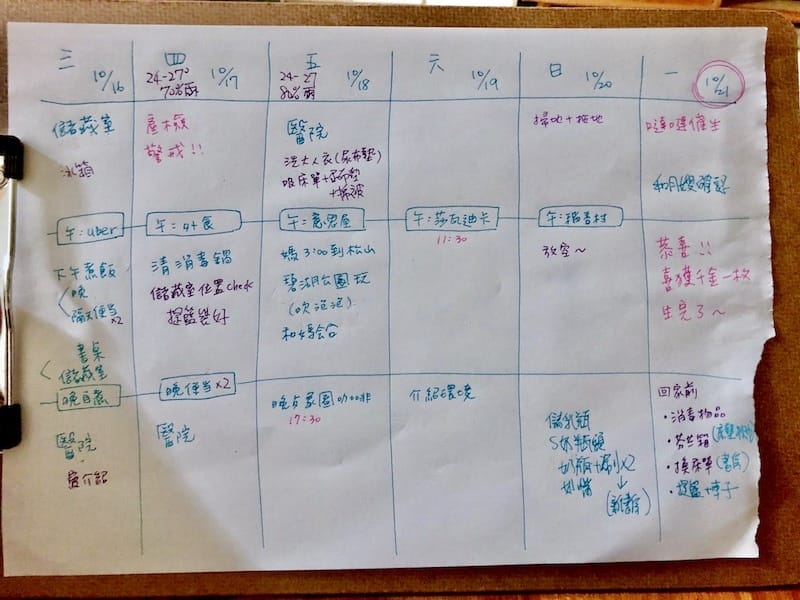 三 10/16
儲藏室
冰箱
午:uber
下午煮飯
晚
隔天便當x2
書桌
儲藏室
晚自煮
醫院
四 10/17
24-27°
70%雨
產檢
警戒!!
午:外食
清消毒鍋
儲藏室位置check
提籃裝好
晚便當x2
醫院
五 10/18
24-27
80%雨
醫院
洗大人衣(尿布墊)
午:
媽3:00到松山
碧湖公園玩
(吹泡泡)
和媽會合
咖啡
17:30
六 10/19
午:莎瓦迪卡
11:30
介紹環境
日 10/20
掃地+拖地
午:稻香村
放空~
儲乳瓶
S奶瓶頭
奶瓶+刷x2
奶嘴
一 10/21
催生
和月嫂確認
恭喜!!
喜獲千金一枚
生完了~
回家前
·消毒物品
·換床單(書房)
·提籃+